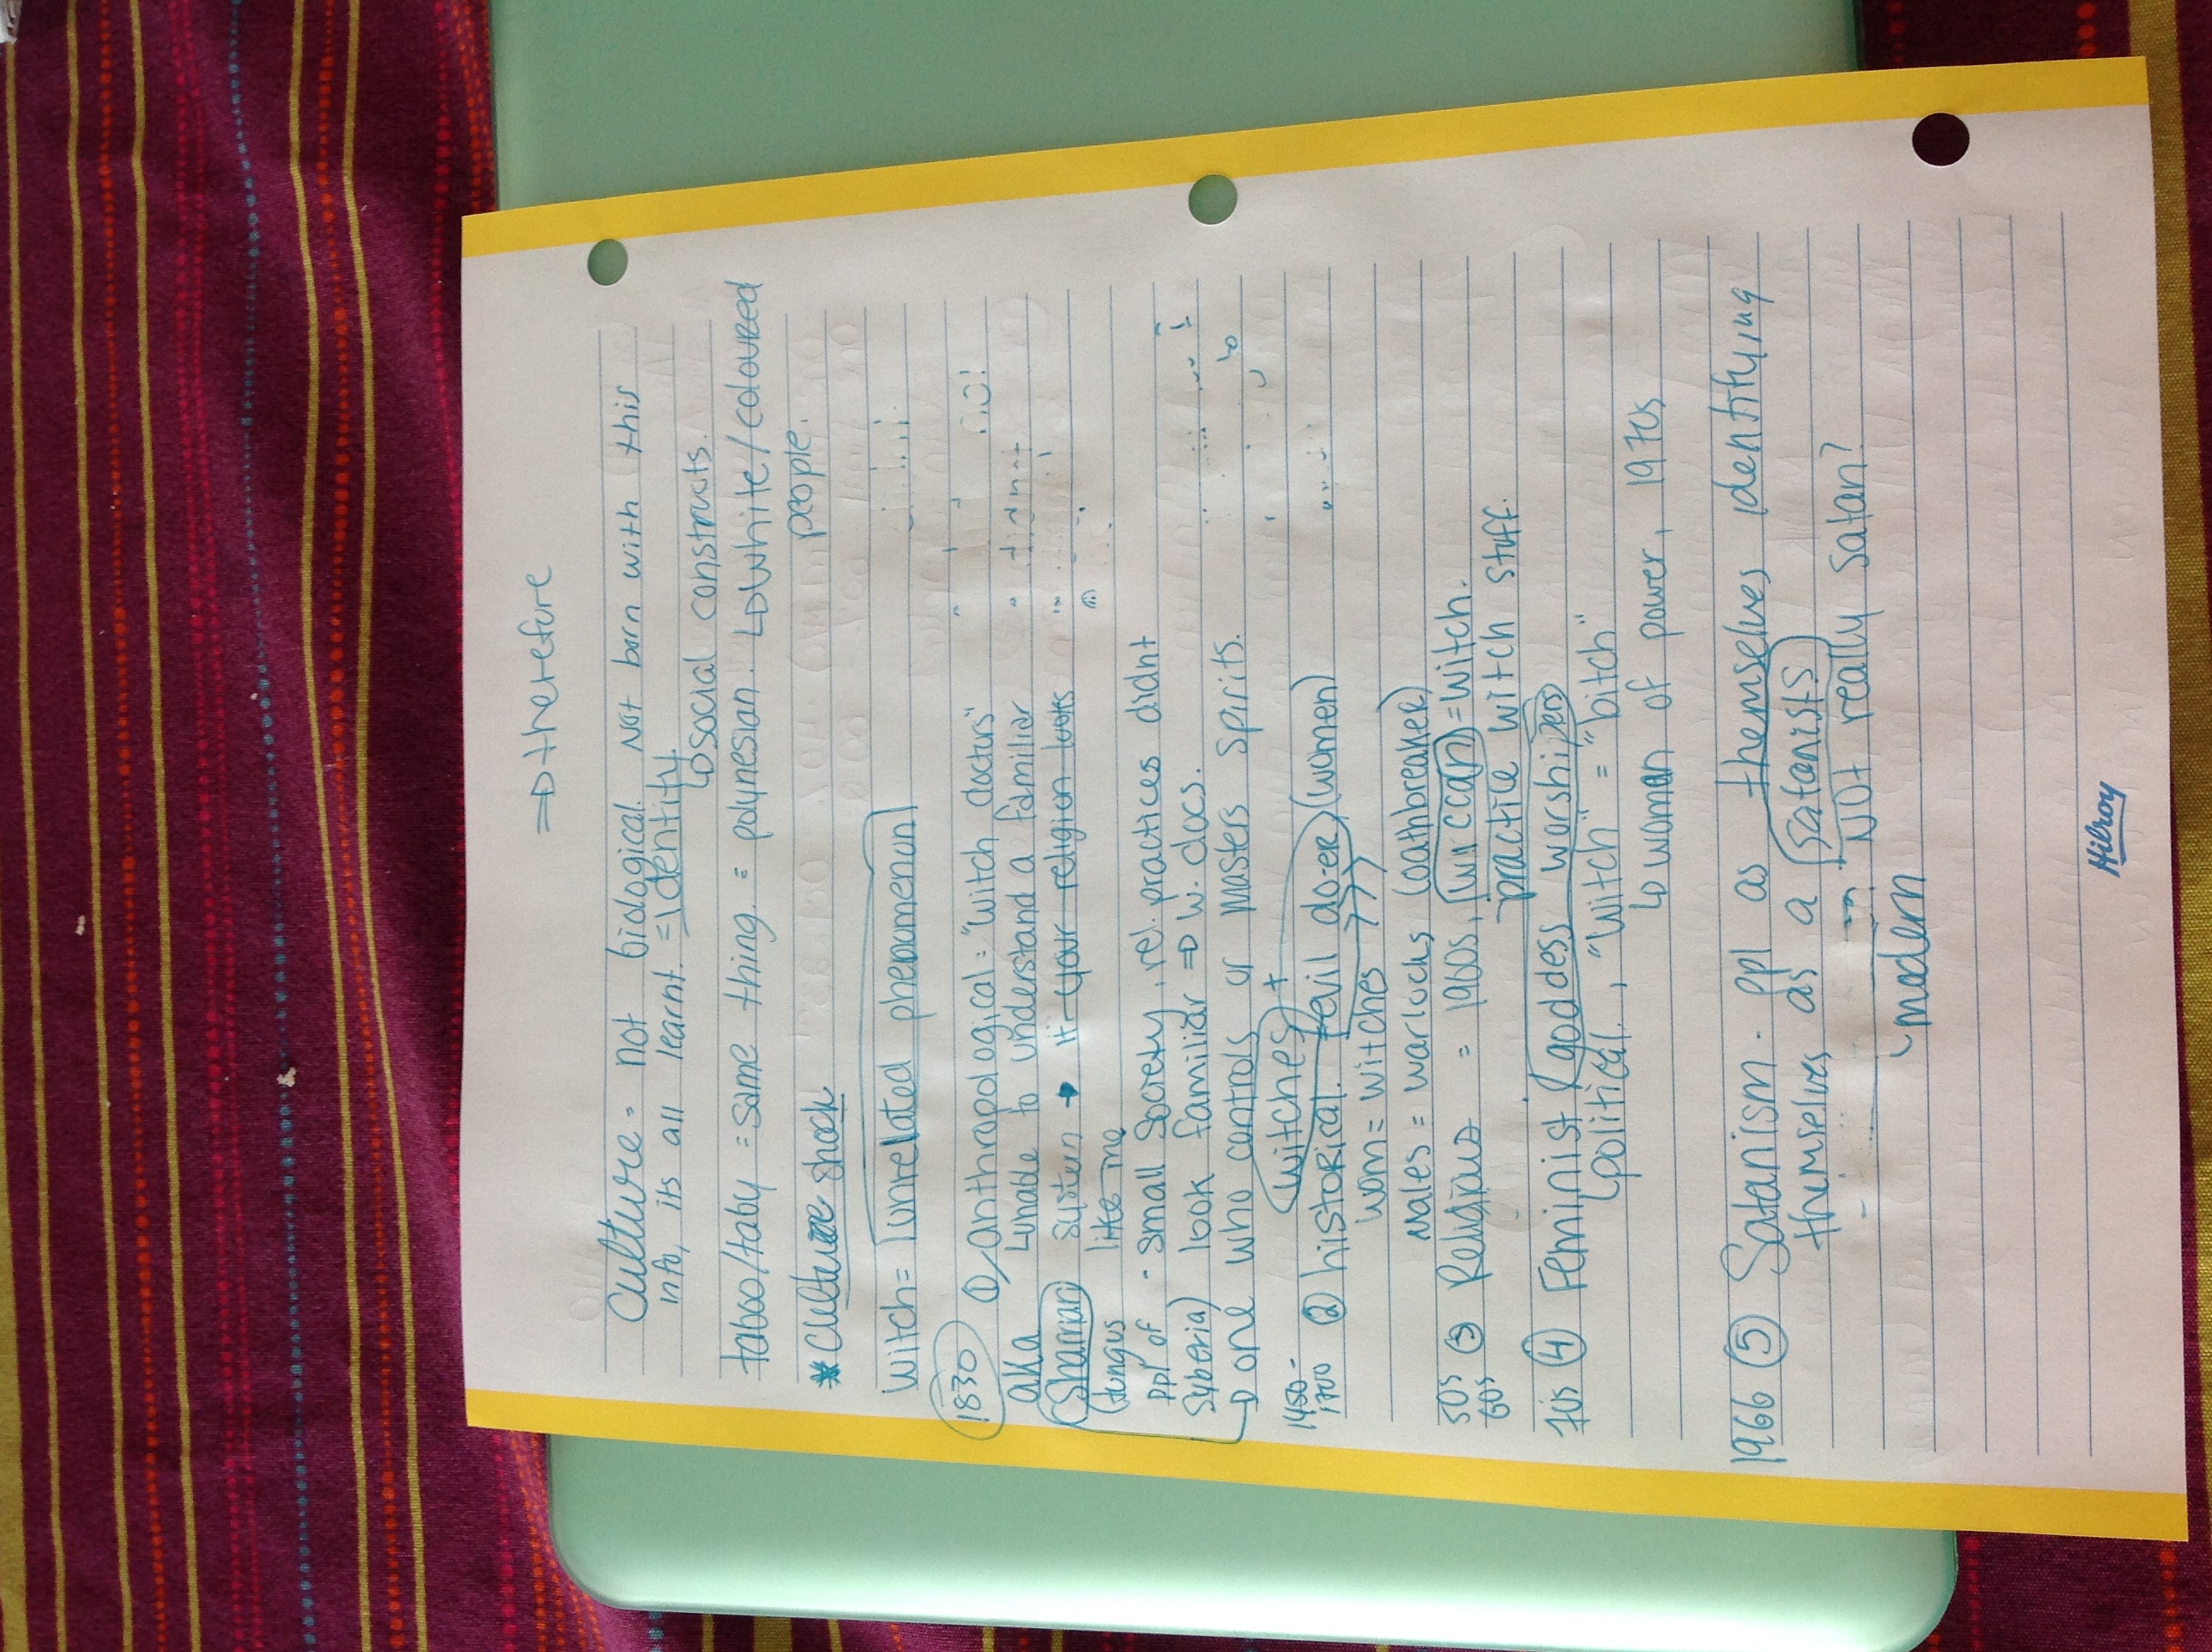 ⇒ therefore
Culture = not biological. Not born with this
info, its all learnt. = identity
↳ social constructs.
taboo/tabu = same thing. = polynesian. ↳ White/coloured
people.
* Culture shock
Witch = unrelated phenomenon
1830 ① anthropological = "witch doctors"
aka ↳ unable to understand a familiar
Shaman system → it your religion looks
(tungus like me
ppl of - small society, rel. practices didnt
Syberia) look familiar ⇒ w. docs.
↳ one who controls or masters spirits.
witches +
1450-
1700 ② historical. evil do-er (women)
wom = witches
Males = warlocks (oathbreaker)
50s
60s ③ Religious = 1960s, wiccan = witch.
practice witch stuff.
70s ④ Feminist goddess worshippers
political, "witch" = "bitch"
↳ woman of power, 1970s
1966 ⑤ Satanism. ppl as themselves identifying
themselves as a Satanists
NOT really Satan?
modern
Hilroy